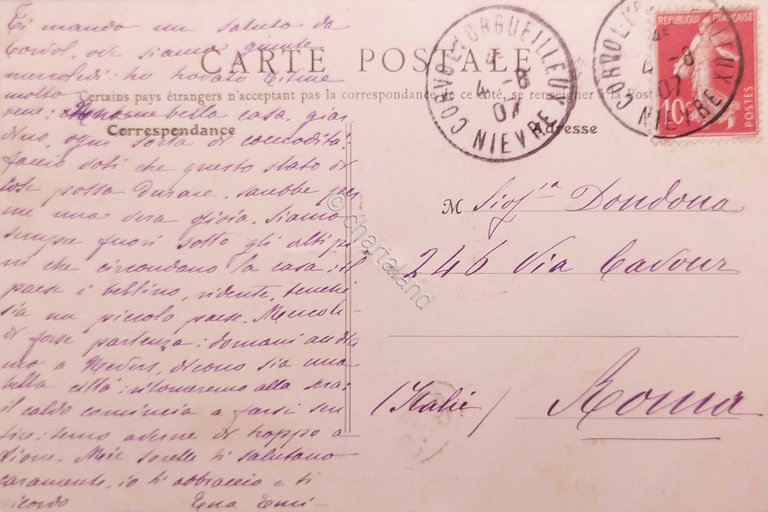 Ti mando un saluto da
Corvol, ove siamo giunte
mercoledì: ho trovato
molto
bene: bella casa, giar
dino, ogni sorta di comodità.
faccio voti che questo stato di
cose possa durare. sarebbe per
me una vera gioia. Siamo
sempre fuori sotto gli alti pi
ni che circondano la casa: il
paese è bellino, ridente, benchè
sia un piccolo paese. Mercoledì
di forse partenza: domani andia
mo a Nevers, dicono sia una
bella città: ritorneremo alla sera:
il caldo comincia a farsi sen
tire: temo averne di troppo a
Mie sorelle ti salutano
caramente, io ti abbraccio e ti
ricordo Tua Emi-
CARTE POSTALE
Certains pays étrangers n'acceptant pas la correspondance de ce côté, se renseigner à la Poste
Correspondance
Adresse
CORVOL-L'ORGUEILLEUX
4 -8
07
NIEVRE
CORVOL-L'ORGUEILLEUX
4E
4 -8
07
NIEVRE
REPUBLIQUE FRANÇAISE
10c
POSTES
M Sigra Dondona
246 Via Cavour
(Italie) Roma
© chartaland